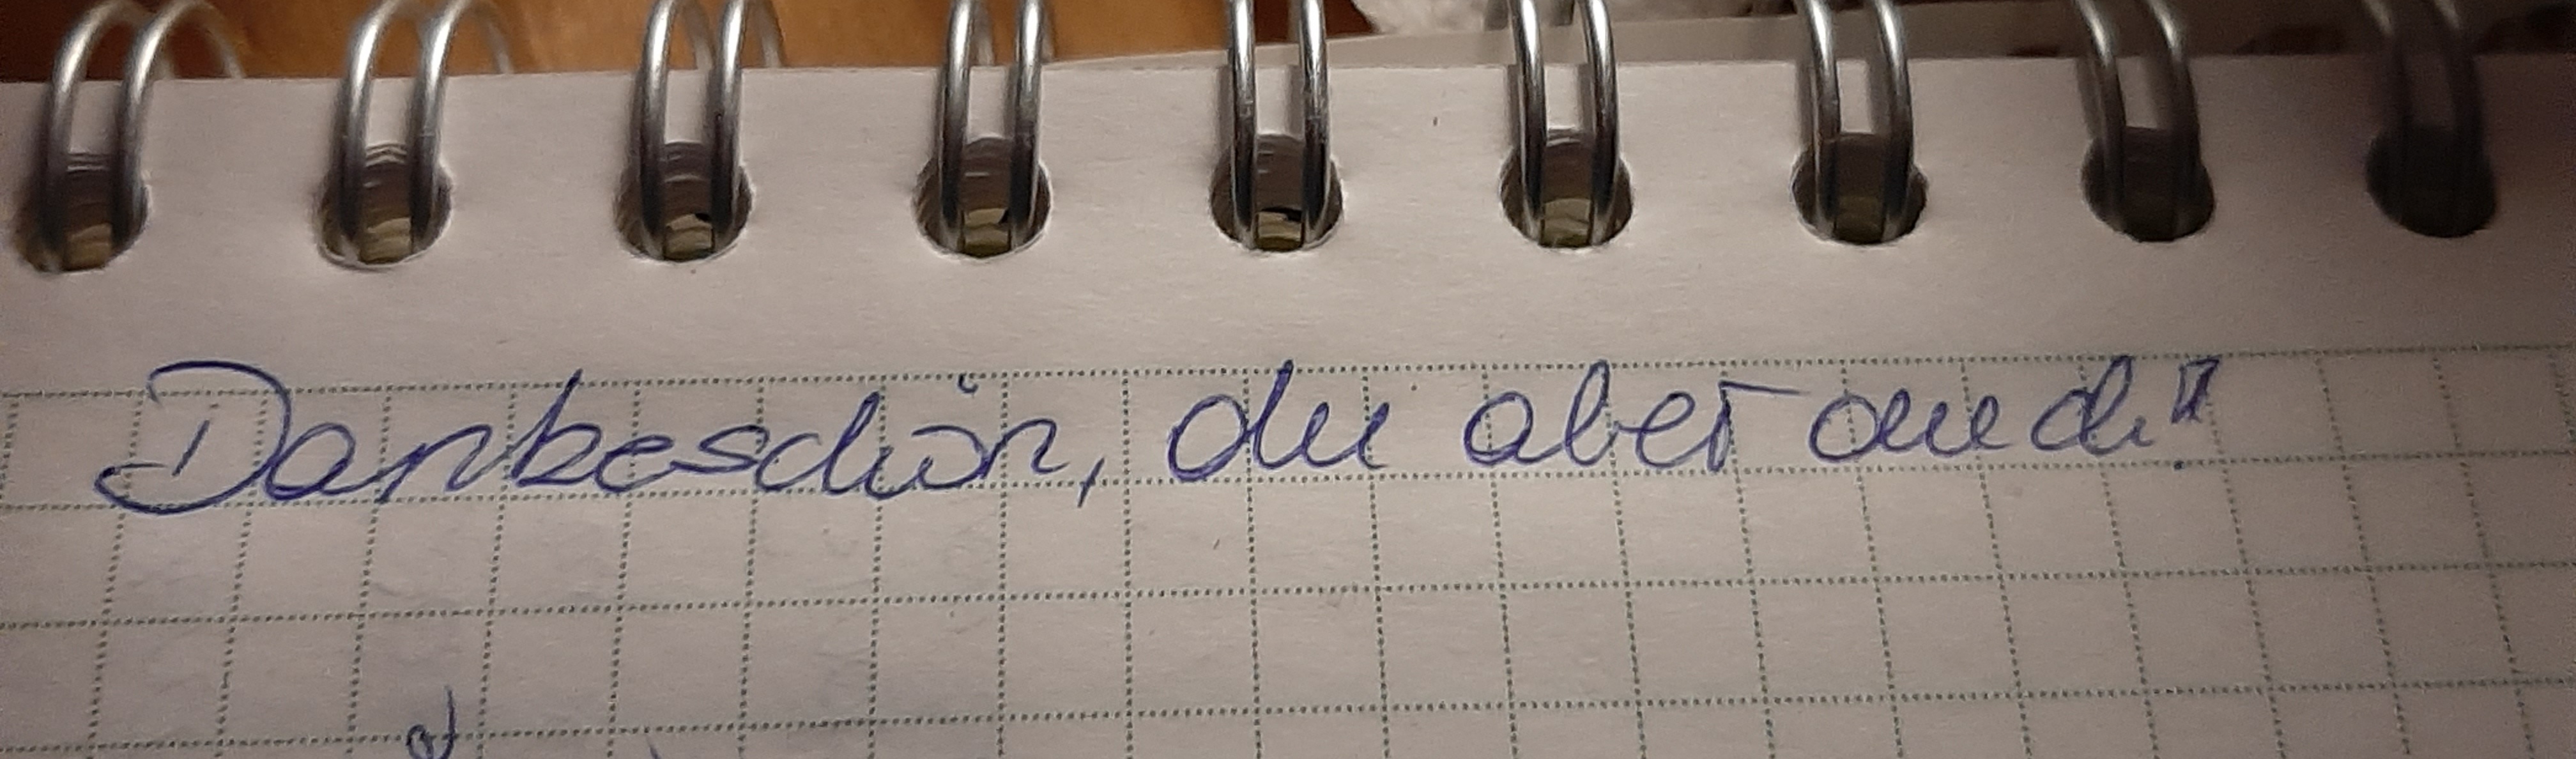 Dankeschön, du aber auch!